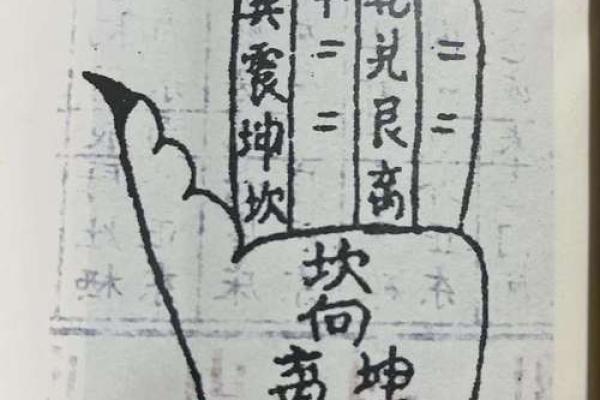 巽震坤坎
二二
兑艮离
二二
坎
向
离 坤